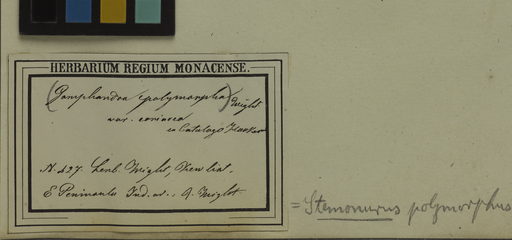 HERBARIUM REGIUM MONACENSE.
(Gomphandra polymorpha) Wight
var. coriacea
in Catalogo
N. 427. herb. Wight,
E Peninsula Ind. or.. R. Wight
= Stemonurus polymorphus